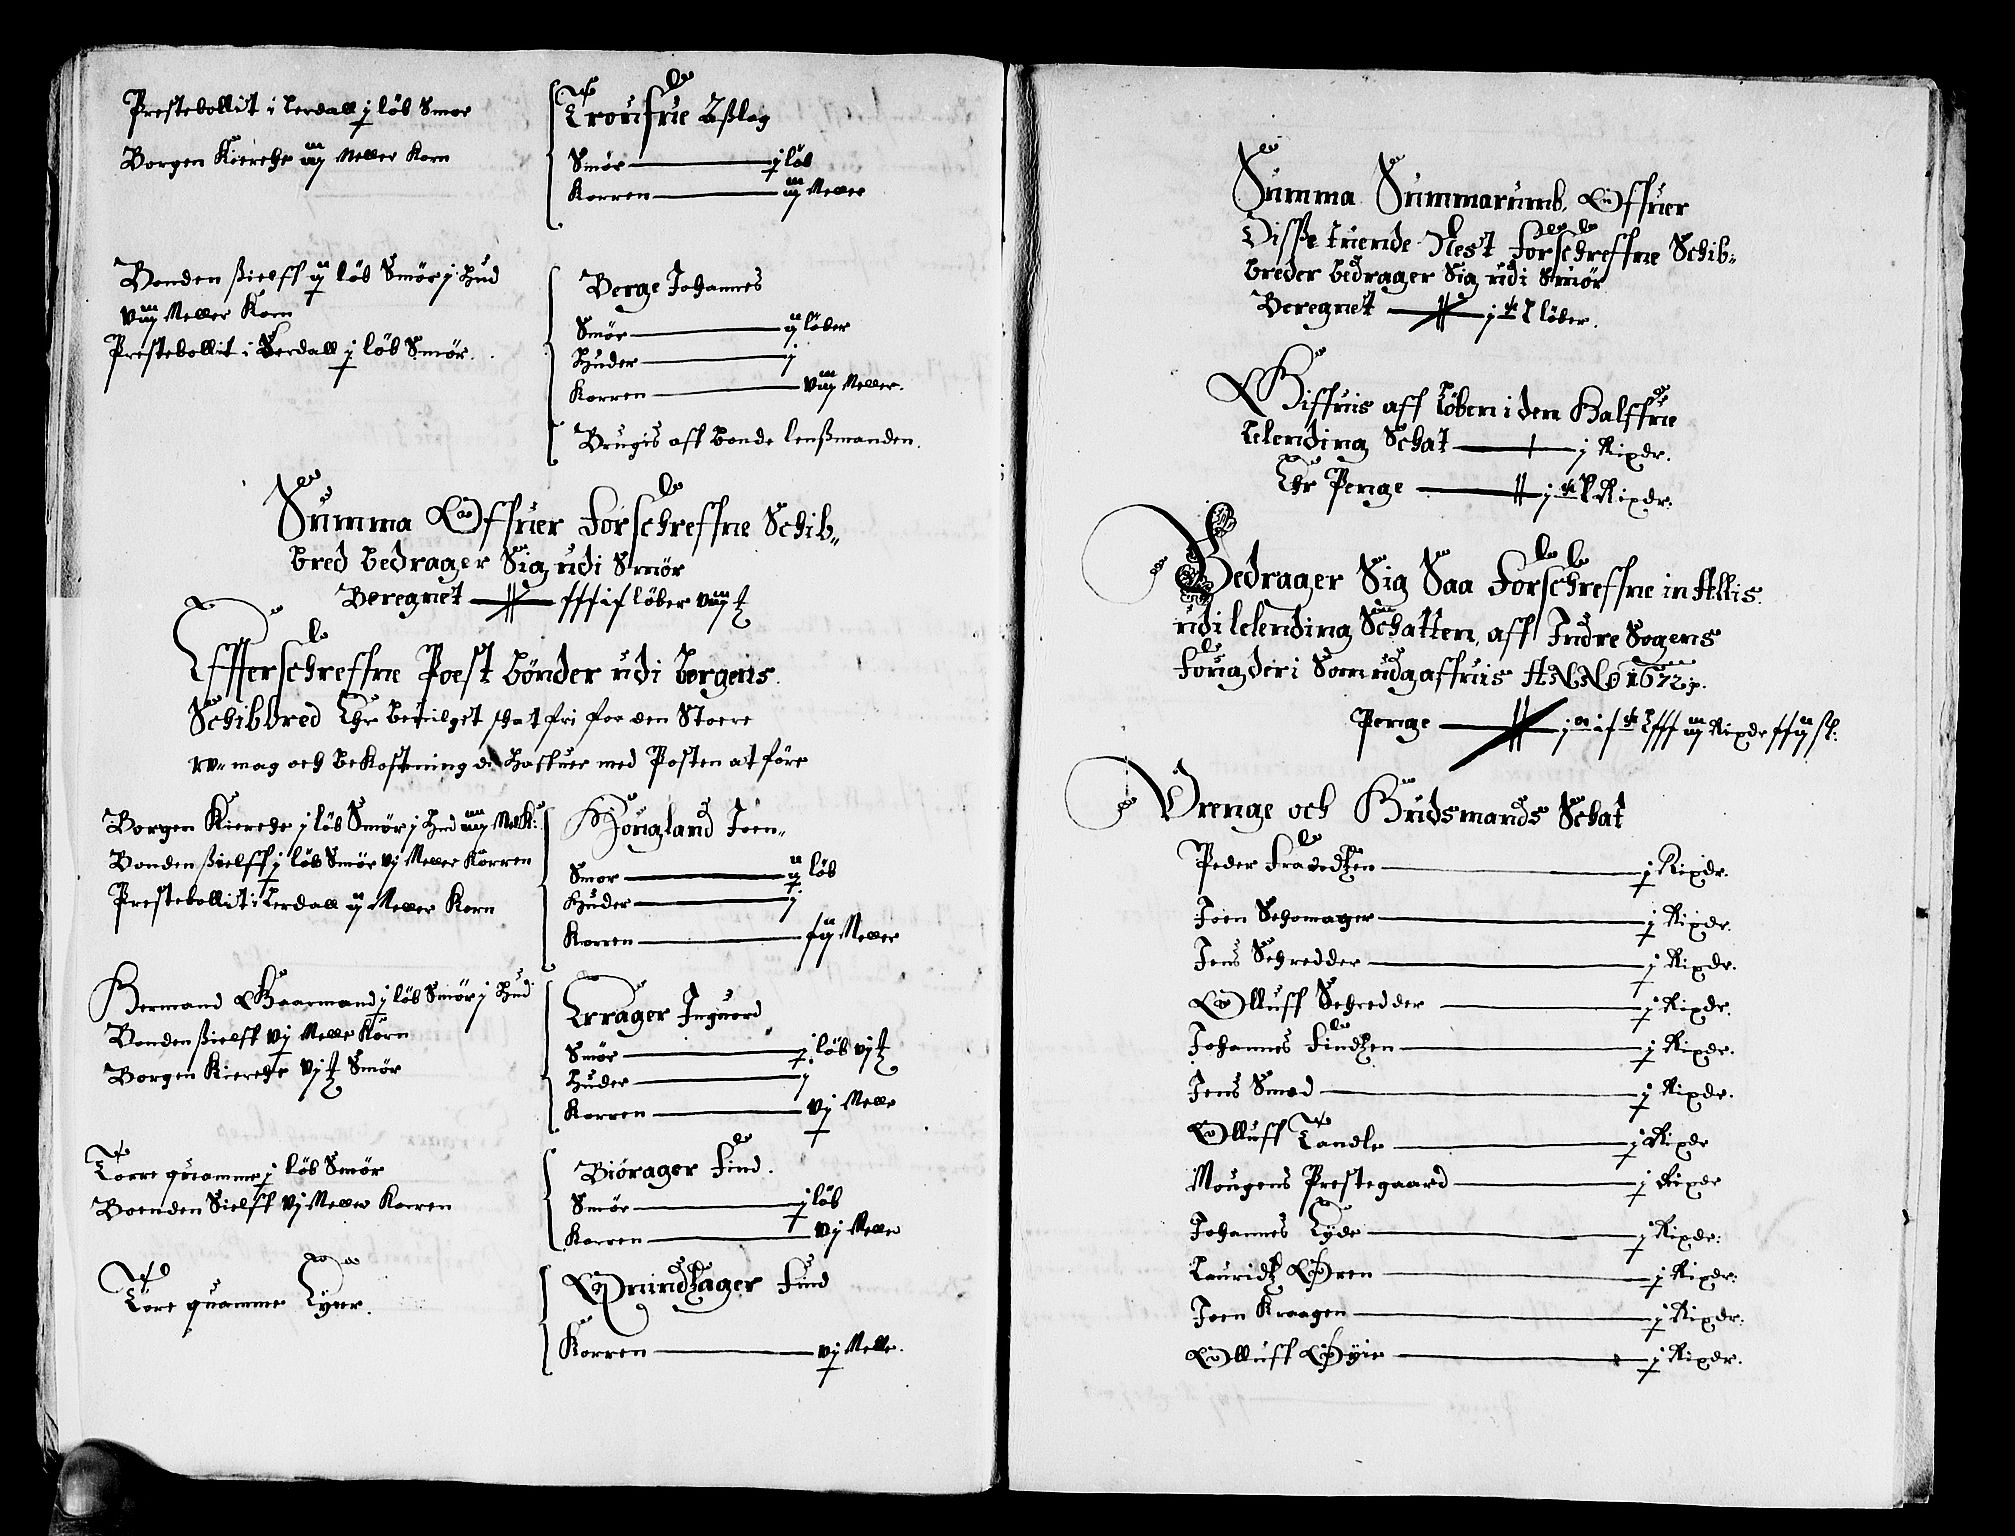 Prestebollit i Lerdall j løb Smør
Borgen Kierche iiij Meller Korn
2 ßlag
Smør — j løb
Korren — iiij Meller
Bonden ßielff ij løb Smør j Hud
viiij Meller Korn
Prestebollit i Lerdall j løb Smør.
Berge Johannes
Smør — ij løber
Huder — j
Korren — viiij Meller.
Brugis aff bonde lenßmanden.
Summa Offuer Forschreffne Schib-
bred bedrager Sig udi Smør
Beregnet — løber
Effterschreffne Poest bønder udi borgens
Schibbred Ehr beuilget schat fri for den Stoere
mag och bekostning di haffuer med Posten at føre
Borgen Kierche j løb Smør j Hud
Bonden ßielff j løb Smør vj Meller Korren
Prestebollit i Lerdall ij Meller Korn
Hougland Joen-
Smør — ij løb
Huder — j
Korren — Meller
Hermand Gaarmand j løb Smør j Hud
Bonden ßielff vj Melle Korn
Borgen Kierche Smør
Errager Inguord
Smør — j løb
Huder — j
Korren — vj Melle
Torre quamme j løb Smør
Boenden Sielff vj Meller Korren
Biørager Find.
Smør — j løb
Korren — vj Melle
Tore quamme
Find
Korren — vj Melle.
Summa Summarumb. Offuer
Disße tuende Nest Forschreffne Schib-
breder bedrager Sig udi Smør
Beregnet — løber.
Giffuis aff Løben i dem Halffue
Leilending Schat — j Rixdr.
Ehr Penge — Rixdr.
Bedrager Sig Saa Forschreffne in Allis
udi leilending Schatten, aff Indre Sogens
Fougderi Som udgaffuis ANNO 1672.
Penge — Rixdr
Drenge och Hudsmands Schat
Peder — j Rixdr.
Joen Schomager — j Rixdr.
Jens Schredder — j Rixdr.
Olluff Schredder — j Rixdr.
Johannes Findtzen — j Rixdr.
Jens Smed — j Rixdr.
Olluff Tandle — j Rixdr
Mougens Prestegaard — j Rixdr
Johannes — j Rixdr:
Lauridtz Øren — j Rixdr:
Joen Kraagen — j Rixdr:
Olluff Øyie — j Rixdr.